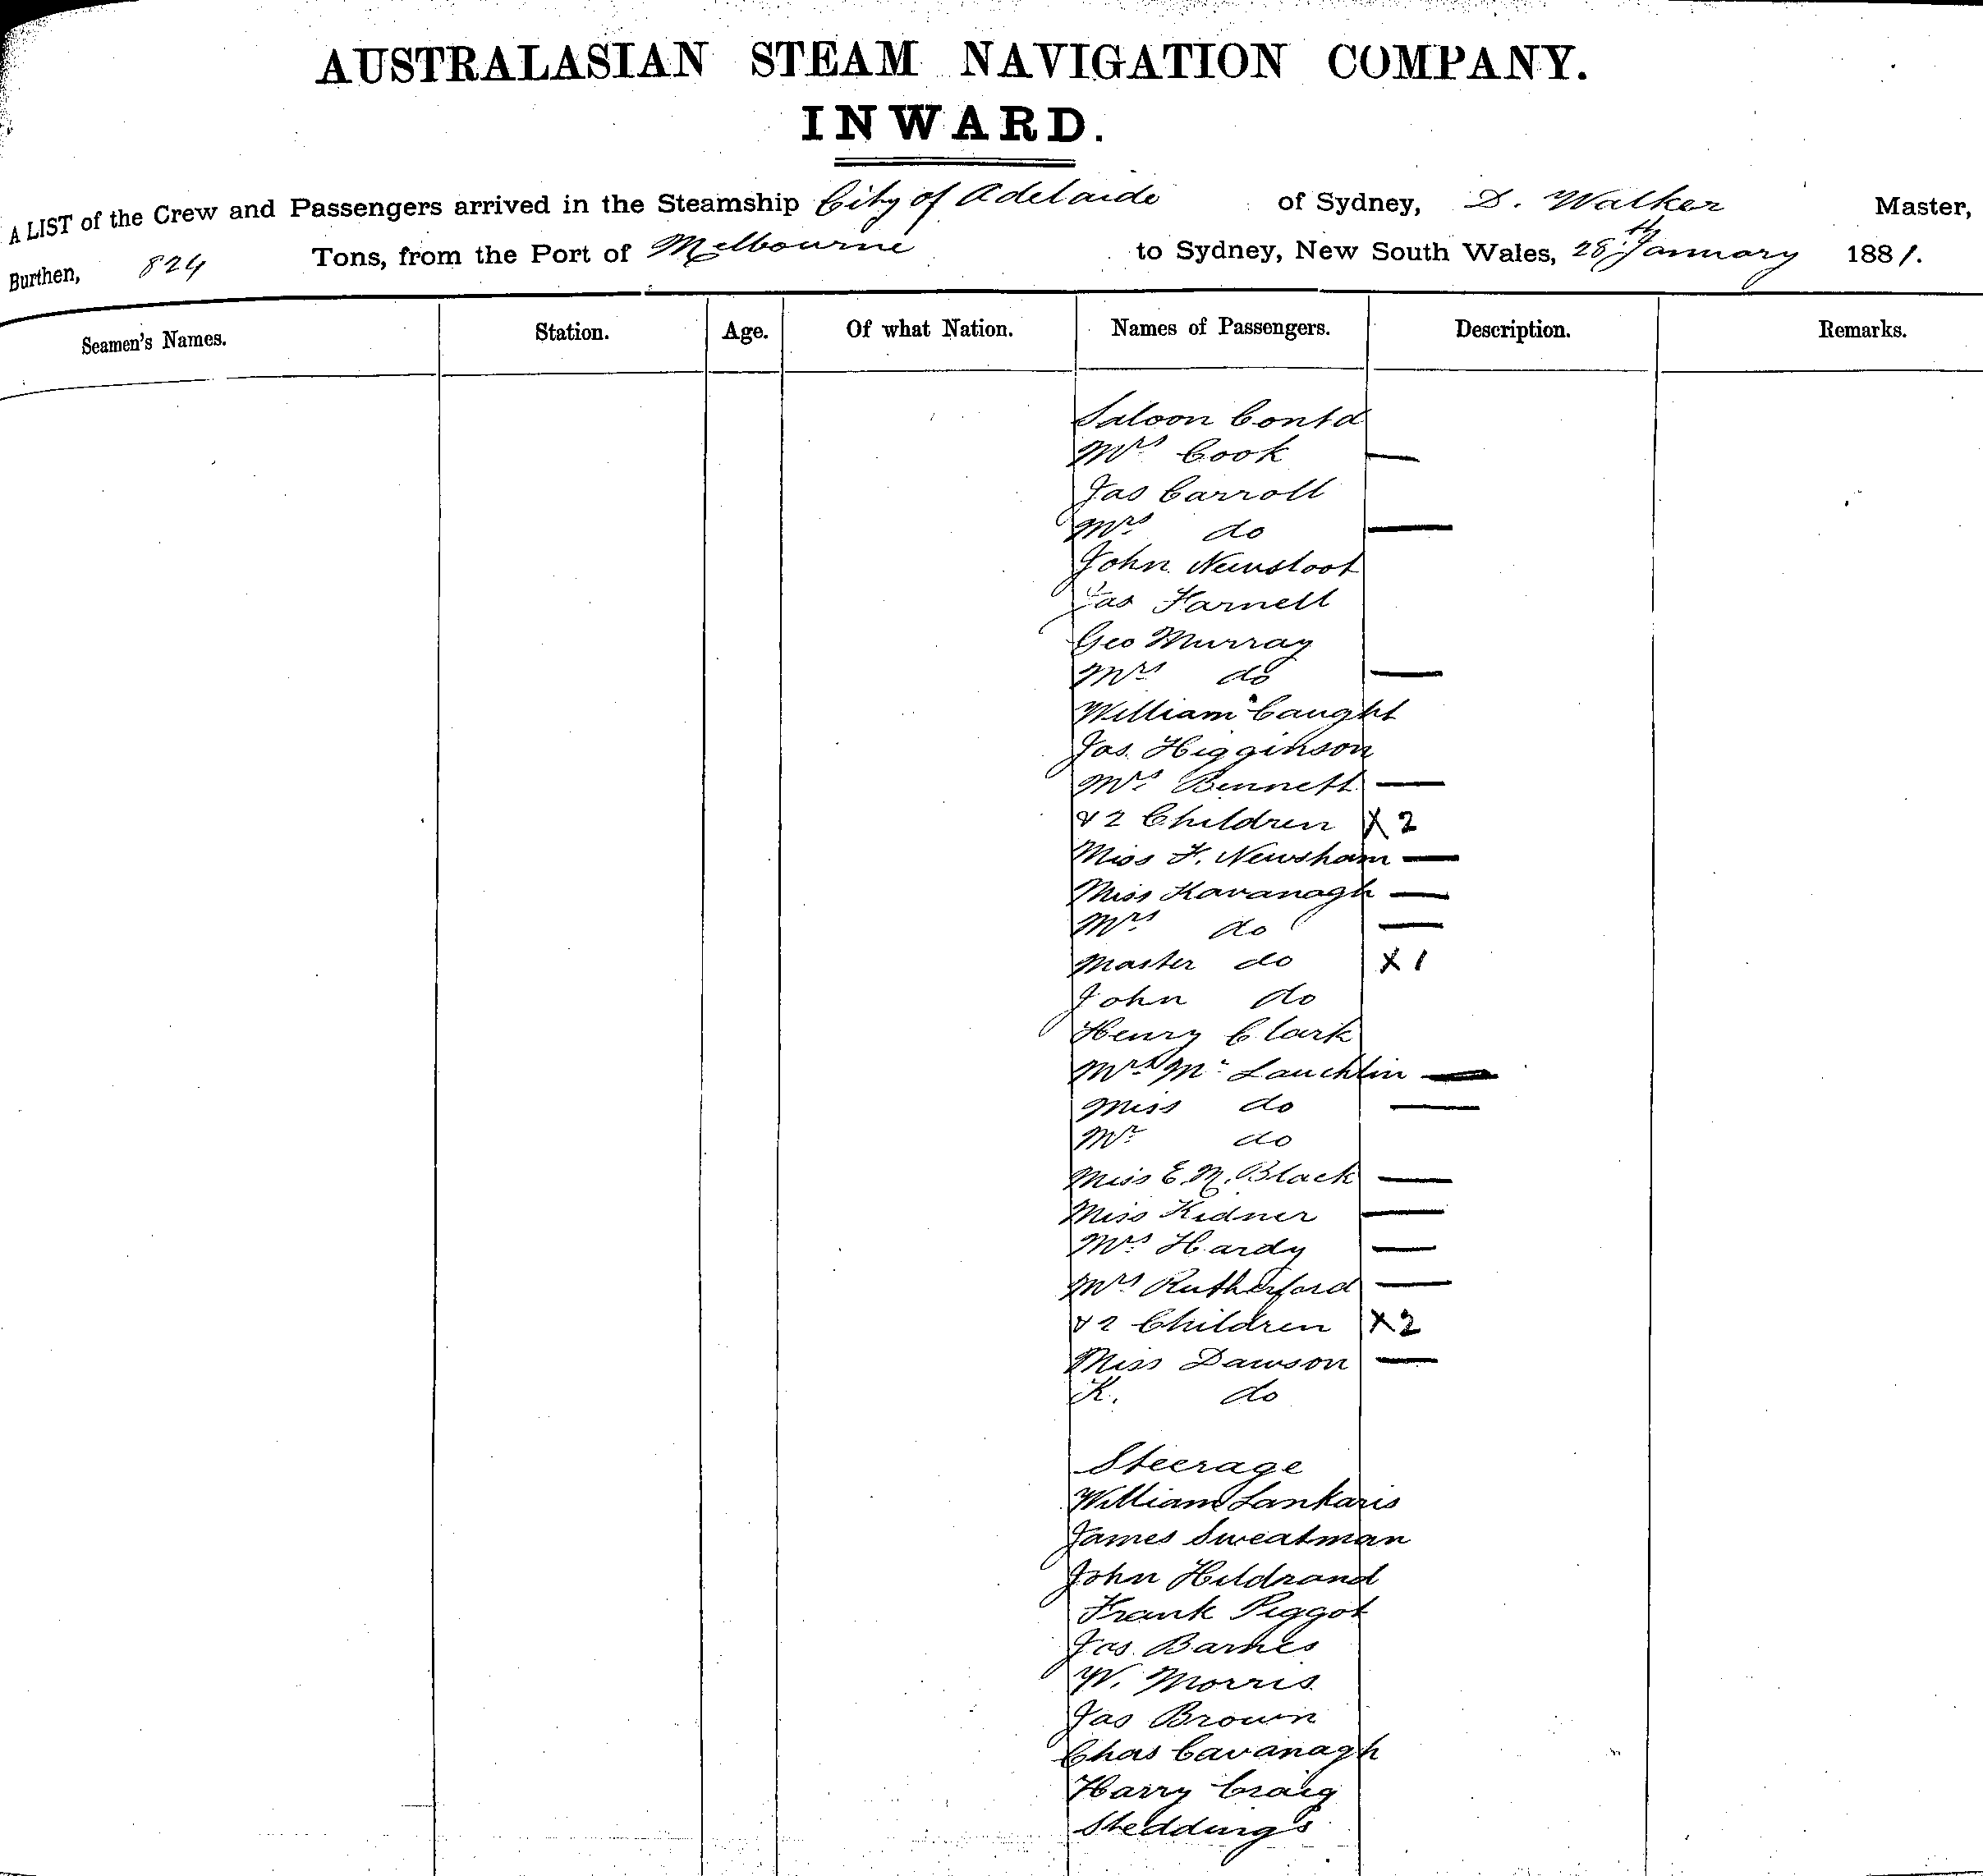 AUSTRALASIAN STEAM NAVIGATION COMPANY.
INWARD.
A LIST of the Crew and Passengers arrived in the Steamship City of Adelaide of Sydney, D. Walker Master,
Burthen, 824 Tons, from the Port of Melbourne to Sydney, New South Wales, 28th January 1881.
Seamen's Names. Station. Age. Of what Nation. Names of Passengers. Description. Remarks.
Saloon Contd
Mrs Cook —
Jas Carroll
Mrs do —
John
Jas Farnell
Geo Murray
Mrs do —
William Caught
Jas. Higginson
Mrs Bennett —
& 2 Children X 2
Miss F. Newsham —
Miss Kavanagh —
Mrs do —
Master do X 1
John do
Henry Clark
Mrs Mc Lauchlin —
Miss do —
Mr do
Miss E. M. Black —
Miss Kidner —
Mrs Hardy —
Mrs Rutherford —
& 2 Children X 2
Miss Dawson —
K. do
Steerage
William Lankaris
James Sweatman
John Hildrand
Frank Piggot
Jas. Barnes
W. Morris
Jas Brown
Chas Cavanagh
Harry Craig
Steddings